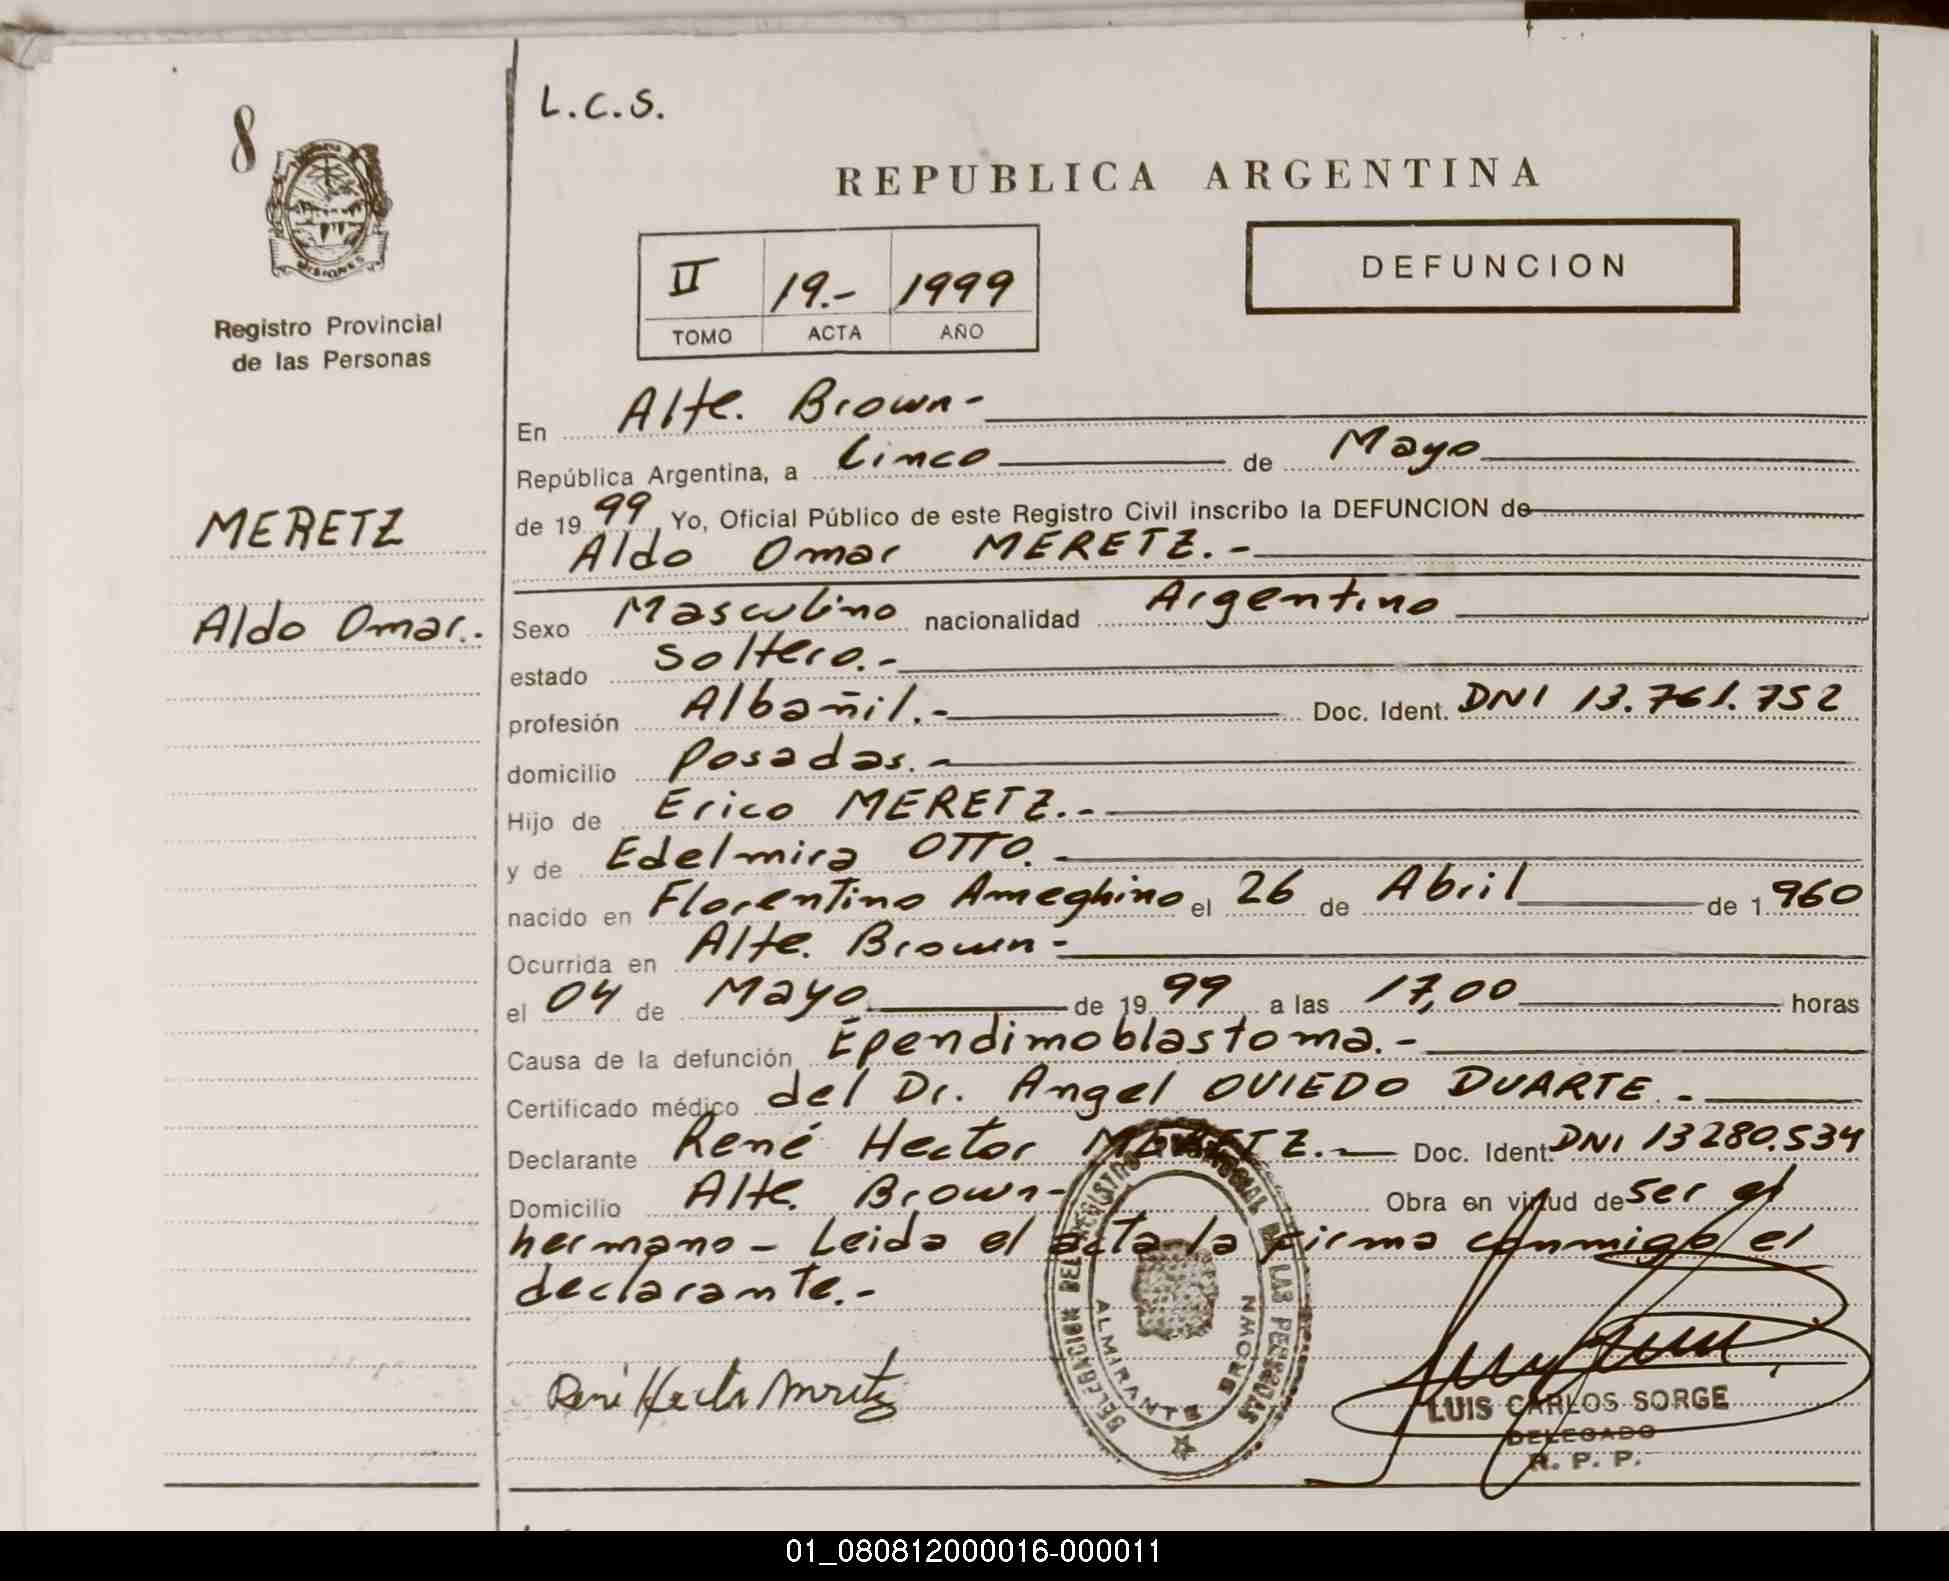 L.C.S.
8
MISIONES
Registro Provincial
de las Personas
REPUBLICA ARGENTINA
II 19.- 1999
TOMO ACTA AÑO
DEFUNCION
MERETZ
Aldo Omar.-
En Alte. Brown-
República Argentina, a Cinco de Mayo
de 1999, Yo, Oficial Público de este Registro Civil inscribo la DEFUNCION de
Aldo Omar MERETZ.-
Sexo Masculino nacionalidad Argentino
estado Soltero.-
profesión Albañil.- Doc. Ident. DNI 13.761.752
domicilio Posadas.-
Hijo de Erico MERETZ.-
y de Edelmira OTTO.
nacido en Florentino Ameghino el 26 de Abril de 1960
Ocurrida en Alte. Brown-
el 04 de Mayo de 1999 a las 17,00 horas
Causa de la defunción Ependimoblastoma.-
Certificado médico del Dr. Angel OVIEDO DUARTE.-
Declarante René Hector MERETZ.- Doc. Ident. DNI 13280.534
Domicilio Alte. Brown- Obra en virtud de ser el
hermano- Leida el acta la firma conmigo el
declarante.-
René Hector Meretz
DELEGACION DEL REGISTRO PROVINCIAL DE LAS PERSONAS
ALMIRANTE BROWN
LUIS CARLOS SORGE
DELEGADO
R. P. P.
01_080812000016-000011